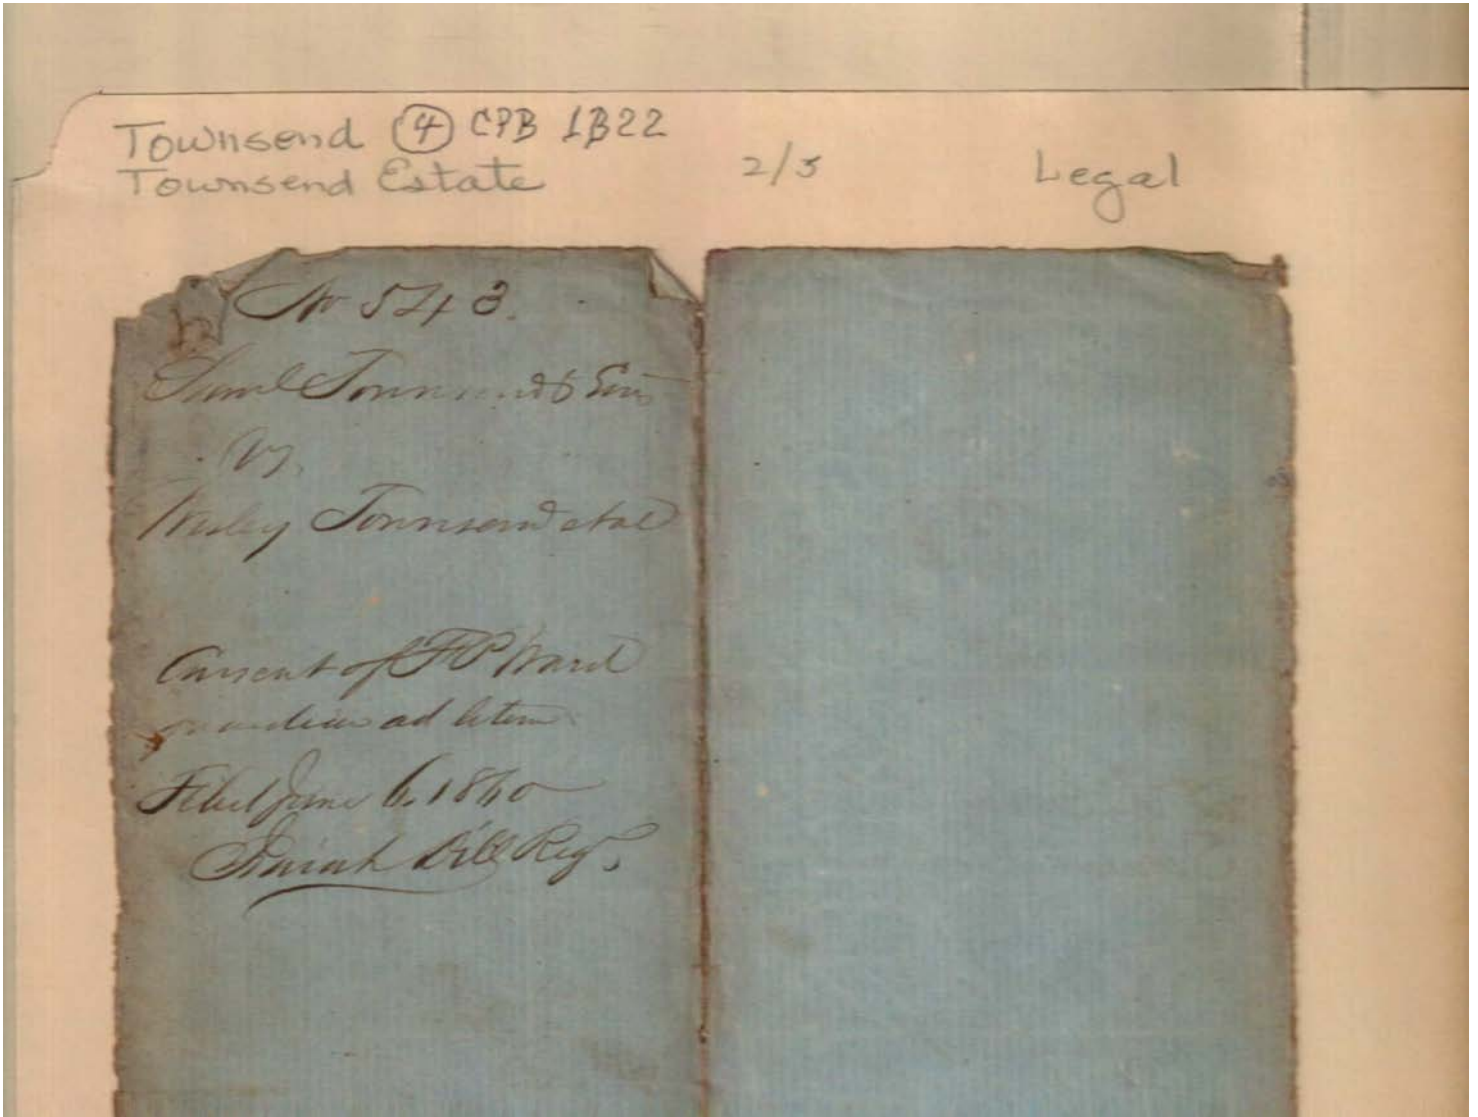 Townsend 4 CPB 1B22
Townsend Estate 2/3 Legal
No 543.
Saml Townsend's Exrs
vs.
Wesley Townsend et al
Consent of F P Ward
guardian ad litem
Filed June 6, 1860
Isaiah Dill Regr